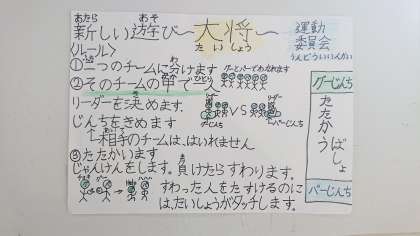 新しい遊び〜大将〜
あたら
あそ
たいしょう
運動
委員会
うんどういいんかい
〈ルール〉
①二つのチームに分けます
わ
グーとパーでわかれます
②そのチームの中で一人
ひとり
リーダーを決めます。
き
じんちをきめます
VS
グーじんち
パーじんち
↑相手のチームは、はいれません
あいて
③たたかいます
じゃんけんをします。負けたらすわります。
ま
すわった人をたすけるのに
は、だいしょうがタッチします。
グーじんち
たたかうばしょ
パーじんち